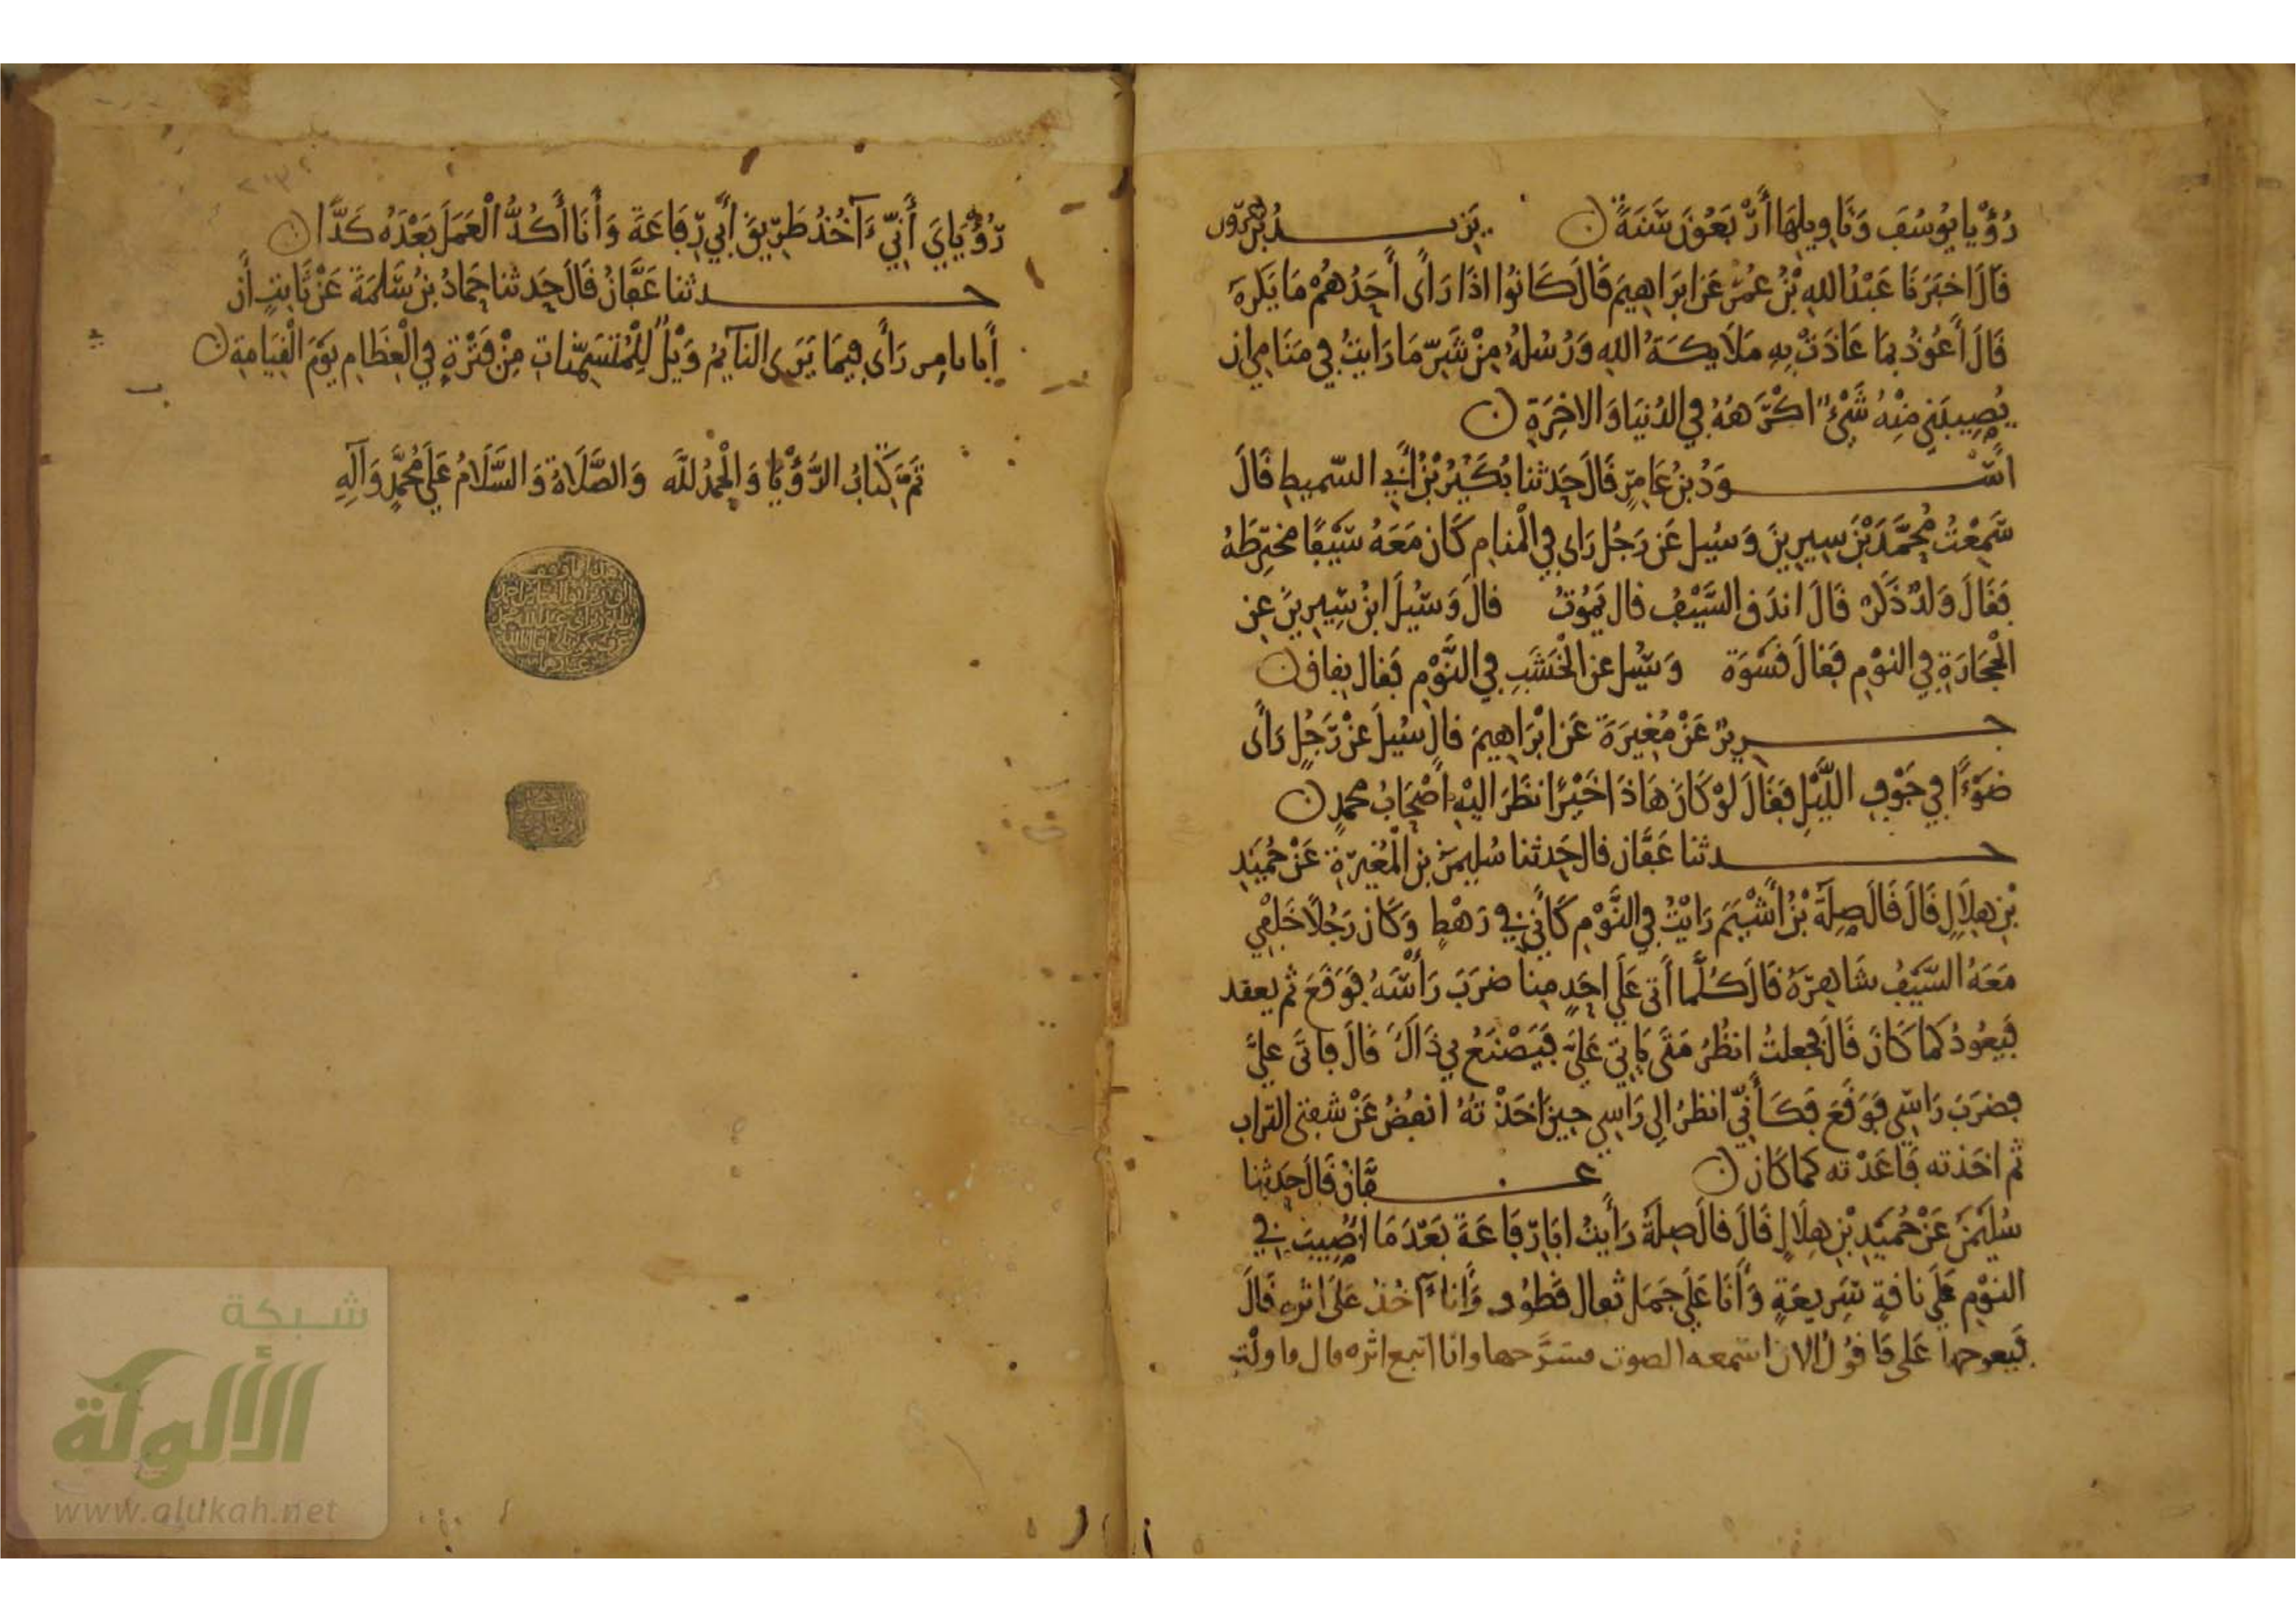 رُؤْيا يُوسُفَ وَتَاوِيلِهَا أَرْبَعُونَ سَنَةً ن يَزِيدُ بْنُ هَرُون
قَالَ اخبَرَنَا عَبْدُ اللهِ بْنُ عُمَرَ عَن ابرَاهِيمَ قَالَ كَانُوا اذَا رَأَى أَحَدُهُمْ مَا يَكرَهُ
قَالَ أَعُوذُ بِمَا عَاذَتْ بِهِ مَلَايكَةُ اللهِ وَرُسُلُهُ مِنْ شَرِّ مَا رَايتُ فِي مَنَامِي ان
يُصِيبَنِي مِنْهُ شَيْءٌ اكْرَهُهُ فِي الدُّنيَا وَالاخِرَةِ ن
اسْوَدُ بنُ عَامِرٍ قَالَ حَدثنا بُكَيْرُ بْنُ أَبِي السَّميطِ قَالَ
سَمِعْتُ مُحَمَّدَ بْنَ سِيرِينَ وَسُيل عَن رَجُل رَاى فِي الْمنامِ كَان مَعَهُ سَيْفًا مخترِطَهُ
فَقَالَ وَلَدٌ ذَكَر قَالَ اندَق السَّيْفُ قال يَمُوتُ قالَ وَسُيلَ ابنُ سِيرِينَ عنِ
الْحِجَارَةِ فِي النوْمِ فَقالَ قَسْوَة وَسُيل عن الْخَشَبِ فِي النَّوْمِ فَقال نفاق ن
جرِيرٌ عَنْ مُغِيرَةَ عَن ابْرَاهِيمَ قالَ سُيلَ عنْ رَجُلٍ رَأَى
ضَوْءًا فِي جَوْفِ اللَّيْلِ فَقَالَ لَوْ كَانَ هَاذَا خَيْرًا نظَرَ اليْهِ اصْحَابُ محمدٍ ن
حدثنا عَفَّان قال حَدثنا سُلَيمَن بن الْمُغِيرَةِ عَنْ حُمَيدِ
بْنِ هِلَالٍ قَالَ قَالَ صِلَةُ بْنُ أَشْيَمَ رَايْتُ فِي النَّوْمِ كَأَنِّي فِي رَهْطٍ وَكَان رَجُلًا خَلْفِي
مَعَهُ السَّيفُ شَاهِرَهُ قَالَ كُلَّمَا أَتَى عَلَى احَدٍ مِنا ضرَبَ رَأْسَهُ فَوَقَعَ ثم يعقد
فَيَعُودُ كَمَا كَانَ قَالَ فجعلتُ انظُرُ مَتَى يَاتِي عَلَيَّ فَيَصْنَعُ بِي ذَاكَ قَالَ فاتَى عليَّ
فضرَبَ رَاسِي فَوَقَعَ فَكَأَنِّي انظرُ الِى رَاسِي حِينَ اخَذْتهُ انفُضُ عَنْ شفتي التراب
ثم اخذته فَاعَدْته كما كَان ن عفَّانُ قَالَ حَدثنا
سُلَيْمَن عَنْ حُمَيْدِ بْنِ هِلَالٍ قَالَ قالَ صِلَةُ رَأَيتُ ابَا رِفَاعَةَ بَعْدَ مَا اصِيبَ فِي
النوْمِ عَلَى نَاقةٍ سَرِيعَةٍ وَأَنَا عَلَى جَمَلٍ ثفال قطُوف وَأَنا آخُذ عَلَى اثره قَالَ
فَيعوجها عَلَى فَاقُولُ الان اسمعه الصوت فسَرَّحها وانا اتبع اثره قال فاولْت
رُؤْيَايَ أَنِّي ءَآخُذُ طَرِيقَ أَبِي رِفَاعَةَ وَأَنَا أَكُدُّ الْعَمَلَ بَعْدَهُ كَدًّا ن
حدثنا عَفَّانُ قَالَ حَدثنا حَمادُ بْنُ سَلَمَةَ عَنْ ثَابتٍ أَن
أَبا ثامر رَأَى فِيمَا يَرَى النآيمُ وَيْلٌ لِلْمُتَسَمِّناتِ مِنْ فَتْرَةٍ فِي الْعِظَامِ يَوْمَ الْقِيَامَةِ ن
تَمَّ كِتَابُ الرُّؤْيَا وَالْحَمدُ للَّه وَالصَّلَاةُ وَالسَّلَامُ عَلَى مُحَمَّدٍ وَآلِهِ
شبكة
الألوكة
www.alukah.net